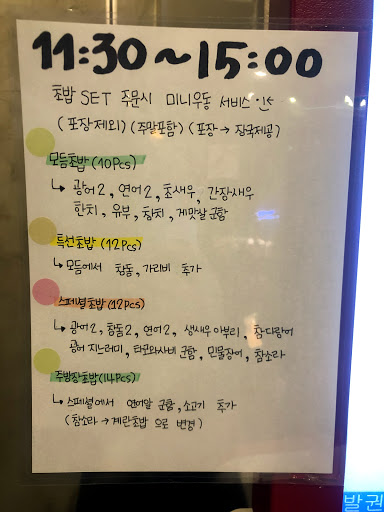 11:30~15:00
초밥 SET 주문시 미니우동 서비스
(포장제외) (주말포함) (포장 → 장국제공)
모듬초밥 (10Pcs)
↳ 광어2, 연어2, 초새우, 간장새우
한치, 유부, 참치, 게맛살 군함
특선초밥 (12Pcs)
↳ 모듬에서 참돔, 가리비 추가
스페셜초밥 (12Pcs)
↳ 광어2, 참돔2, 연어2, 생새우 아부리, 참다랑어
광어 지느러미, 타코와사비 군함, 민물장어, 참소라
주방장초밥 (14Pcs)
↳ 스페셜에서 연어알 군함, 소고기 추가
(참소라 → 계란초밥 으로 변경)
발권